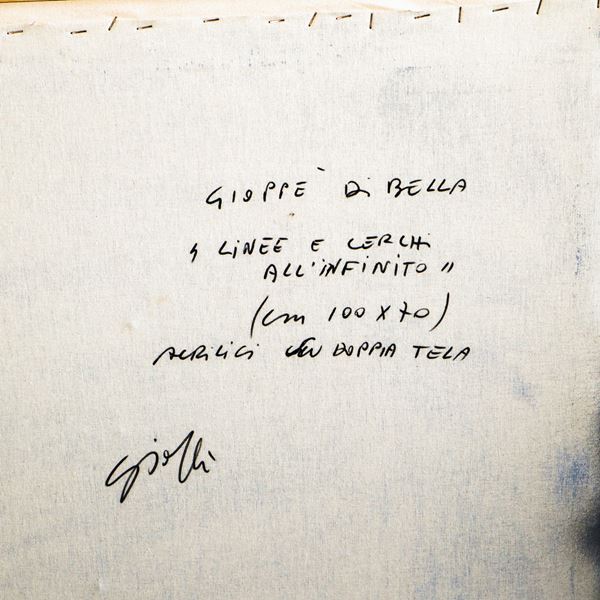 GIOPPÈ Di BELLA
" LINEE E CERCHi
ALL'INFINITO "
(cm 100 X 70)
ACRILICI SU DOPPIA TELA